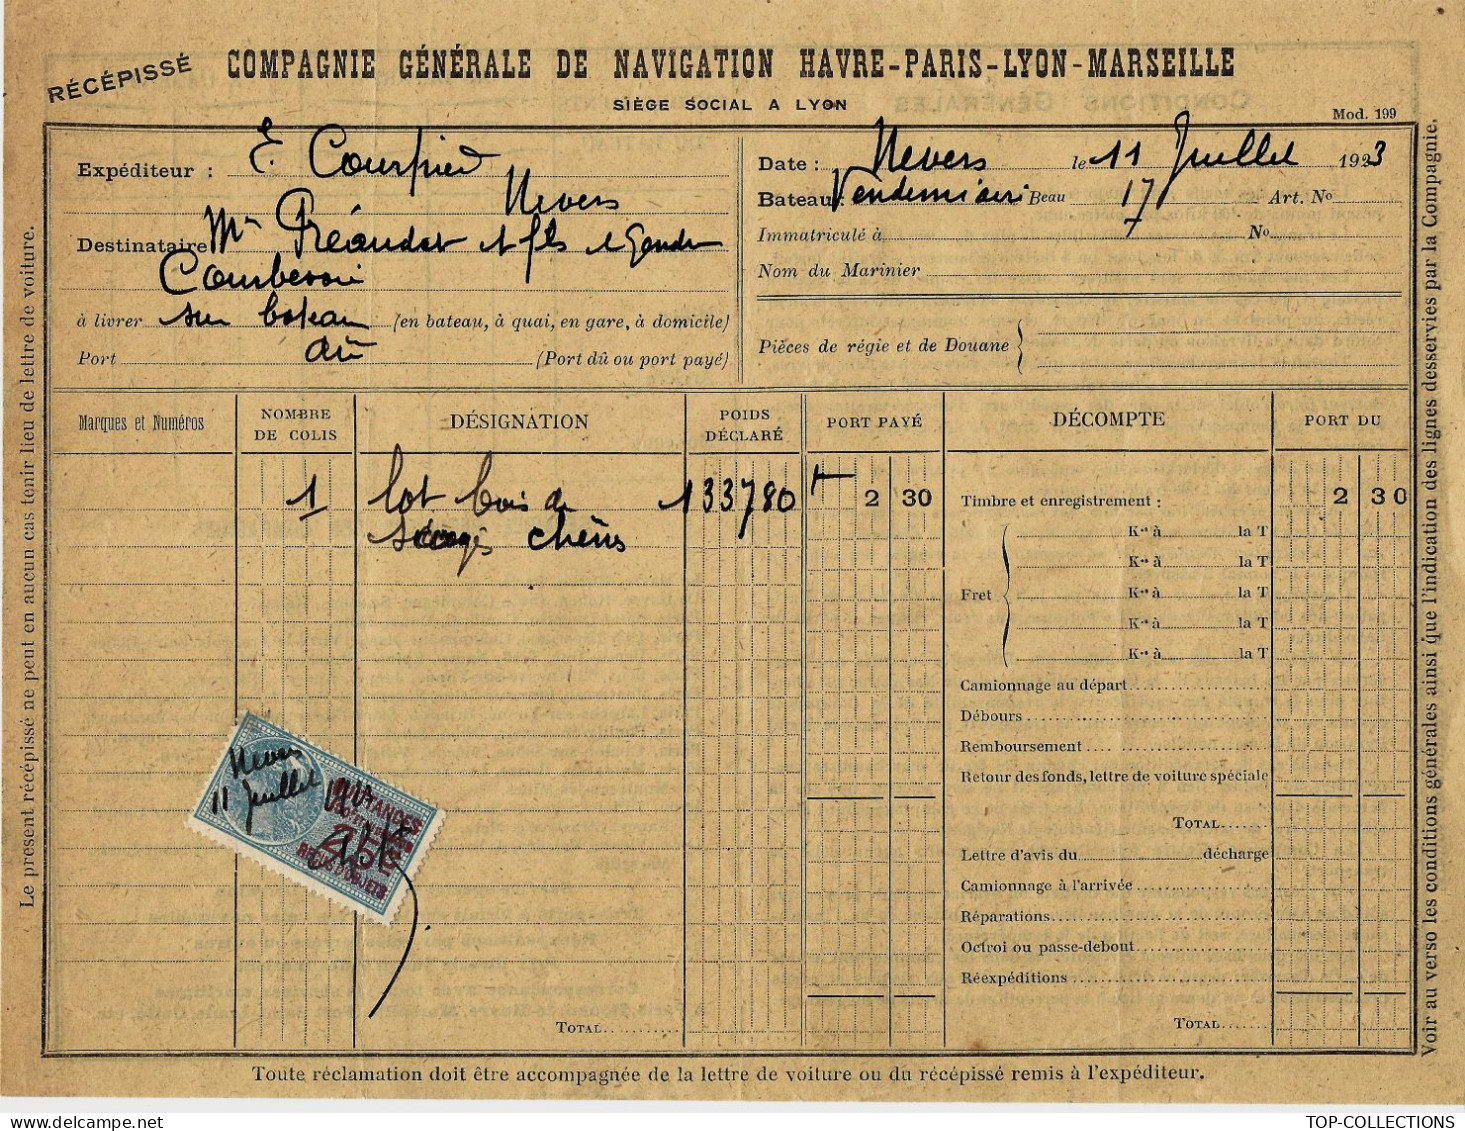 RÉCÉPISSÉ
COMPAGNIE GÉNÉRALE DE NAVIGATION HAVRE-PARIS-LYON-MARSEILLE
SIÈGE SOCIAL A LYON
Mod. 199
Expéditeur : E. Courpied
Nevers
Destinataire Mrs Préaudat et fils et Gendre
Courbevoie
à livrer sur bateau (en bateau, à quai, en gare, à domicile)
Port dû (Port dû ou port payé)
Date : Nevers le 11 Juillet 1923
Bateau : Vendemiaire Beau 17 Art. No
Immatriculé à No
Nom du Marinier
Pièces de régie et de Douane
Marques et Numéros
NOMBRE DE COLIS
DÉSIGNATION
POIDS DÉCLARÉ
PORT PAYÉ
DÉCOMPTE
PORT DU
1 lot bois de 133780 2 30
sciages chêne
Timbre et enregistrement : 2 30
Fret
Kos à la T
Kos à la T
Kos à la T
Kos à la T
Kos à la T
Camionnage au départ
Débours
Remboursement
Retour des fonds, lettre de voiture spéciale
TOTAL
Lettre d'avis du décharge
Camionnage à l'arrivée
Réparations
Octroi ou passe-debout
Réexpéditions
TOTAL
TOTAL
Nevers
11 Juillet
QUITTANCES
25c
REÇUS D'OBJETS
Toute réclamation doit être accompagnée de la lettre de voiture ou du récépissé remis à l'expéditeur.
Le présent récépissé ne peut en aucun cas tenir lieu de lettre de voiture.
Voir au verso les conditions générales ainsi que l'indication des lignes desservies par la Compagnie.
TOP-COLLECTIONS